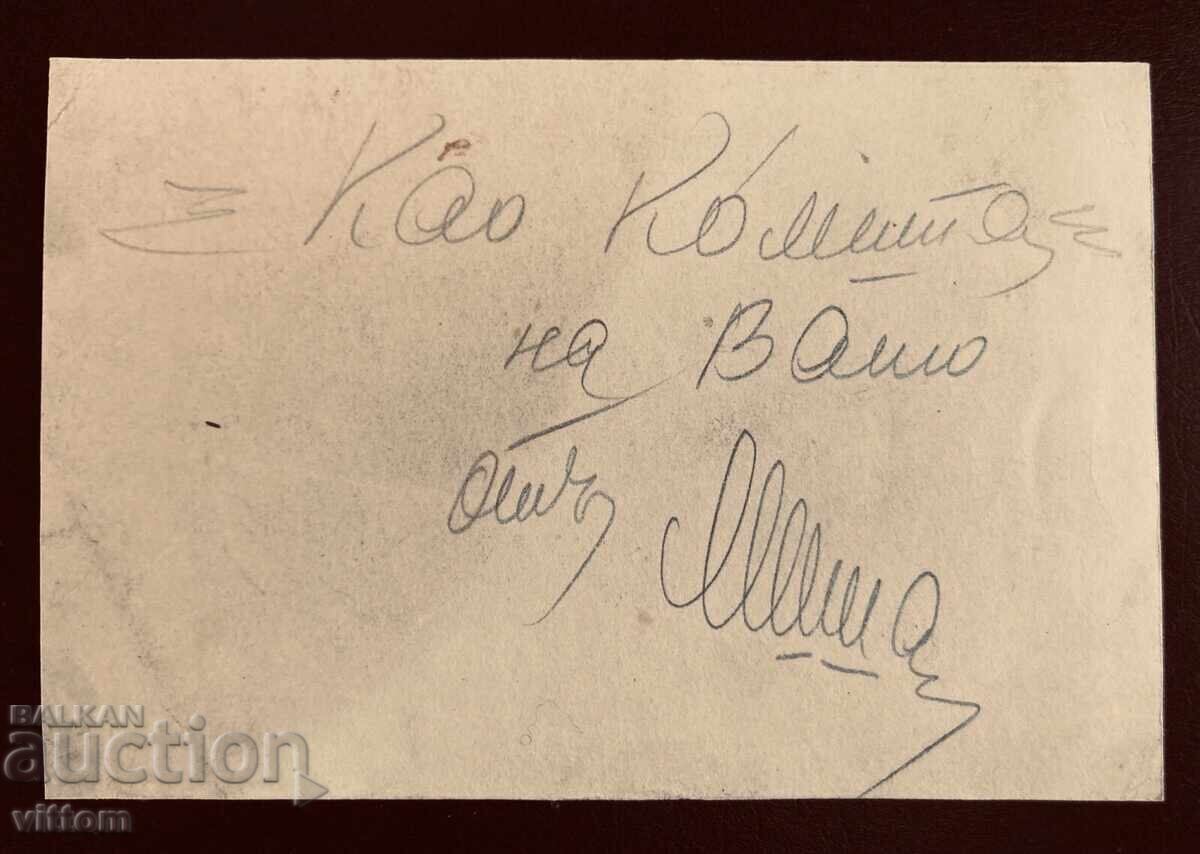 Као Комита
на Вашо
отъ Миша
BALKAN
auction
vittom